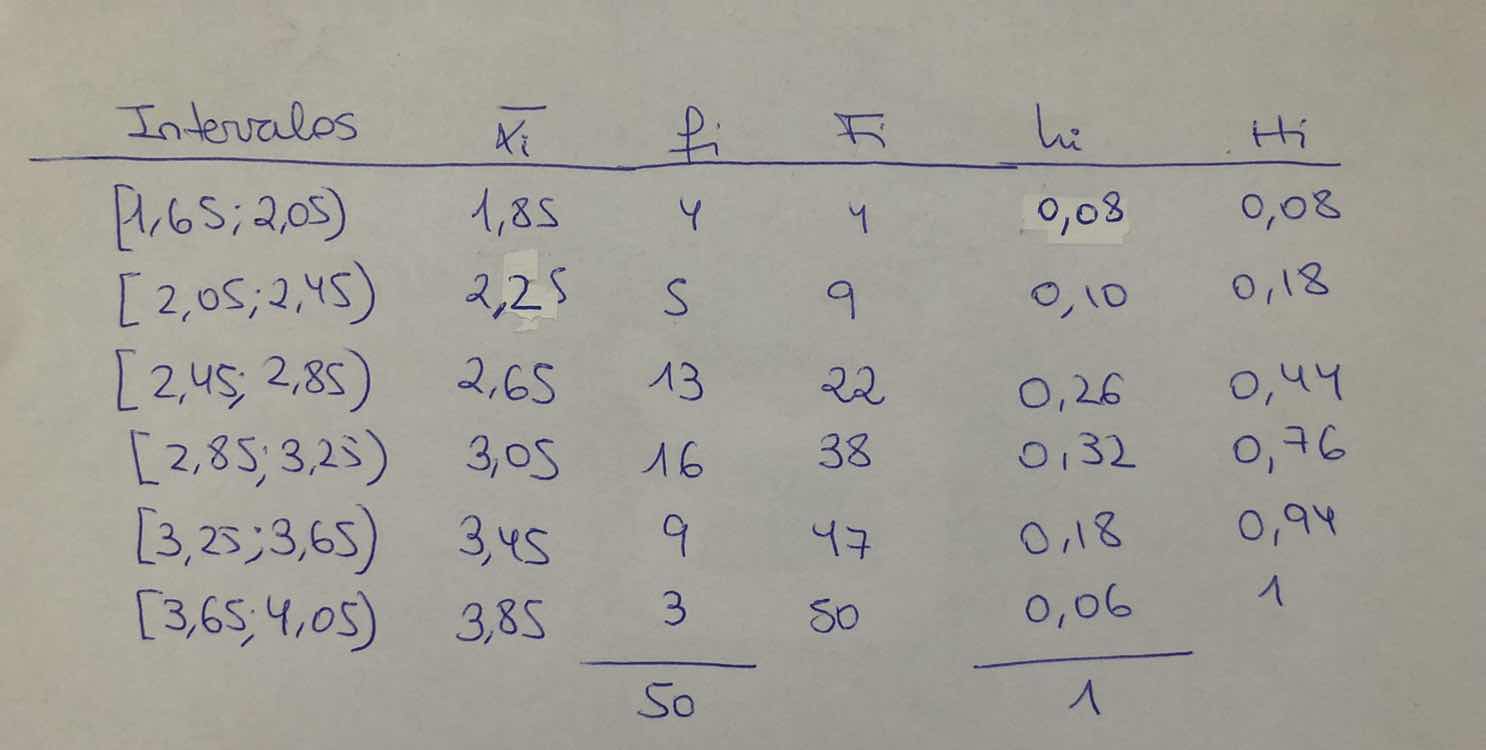 Intervalos x̄i fi Fi hi Hi
[1,65;2,05) 1,85 4 4 0,08 0,08
[2,05;2,45) 2,25 5 9 0,10 0,18
[2,45;2,85) 2,65 13 22 0,26 0,44
[2,85;3,25) 3,05 16 38 0,32 0,76
[3,25;3,65) 3,45 9 47 0,18 0,94
[3,65;4,05) 3,85 3 50 0,06 1
50 1